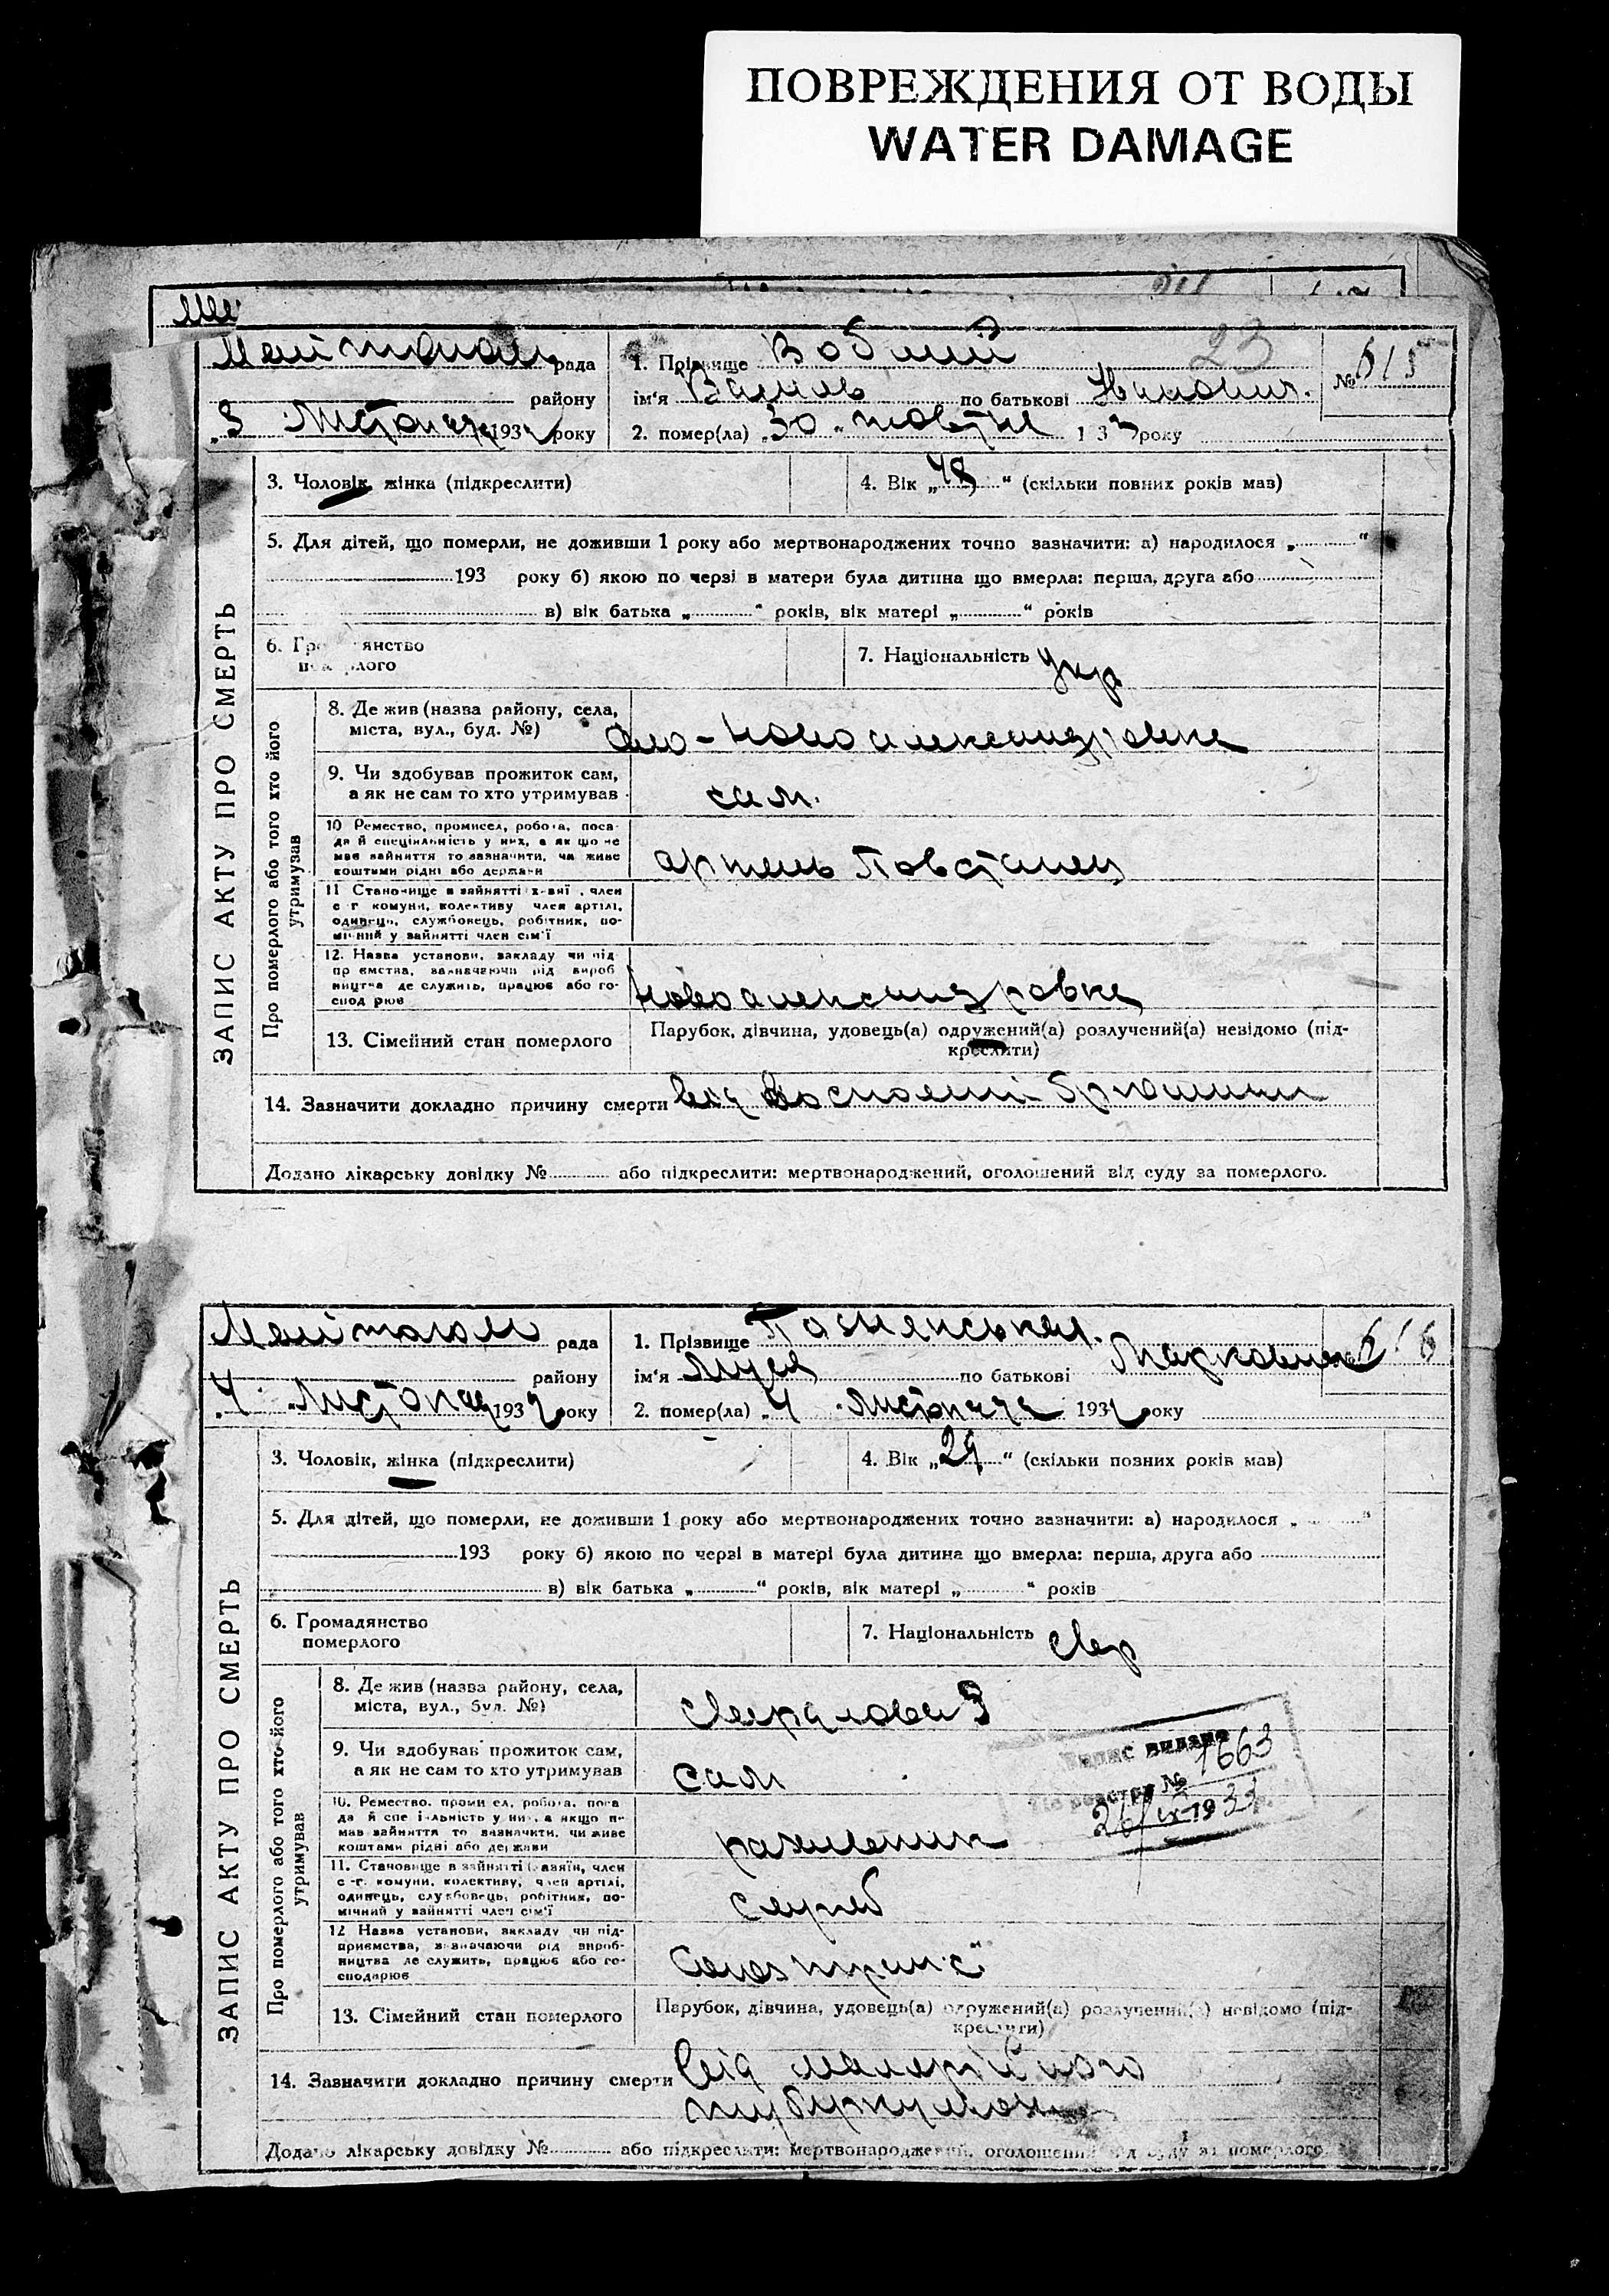 ПОВРЕЖДЕНИЯ ОТ ВОДЫ
WATER DAMAGE
23
рада
1. Прізвище
№ 615
району
ім'я Василь по батькові Иванович.
„3 Листопада 193 року
2. помер(ла) „30" жовтня 1 3 року
ЗАПИС АКТУ ПРО СМЕРТЬ
3. Чоловік, жінка (підкреслити)
4. Вік „48" (скільки повних років мав)
5. Для дітей, що померли, не доживши 1 року або мертвонароджених точно зазначити: а) народилося „ "
193 року б) якою по черзі в матери була дитина що вмерла: перша, друга або
в) вік батька „ " років, вік матері „ " років
6. Гр янство
п лого
7. Національність укр
Про померлого або того хто його утримував
8. Де жив (назва району, села,
міста, вул., буд. №)
Ново александровка
9. Чи здобував прожиток сам,
а як не сам то хто утримував
сам.
10 Ремество, промисел, робота, поса-
да й спеціяльність у них, а як що не
має зайняття то зазначити, чи живе
коштами рідні або держави
артель Повстанец
11 Становище в зайнятті хазяї, член
с г комуни, колективу член артілі,
одинець, службовець, робітник, по-
мічний у зайнятті член сім'ї
12. Назва установи, закладу чи під
пр ємства, зазначаючи рід вироб
ництва де служить, працює або го-
спод рює
Новоалександровка
13. Сімейний стан померлого
Парубок, дівчина, удовець(а) одружений(а) розлучений(а) невідомо (під-
креслити)
14. Зазначити докладно причину смерти від
Додано лікарську довідку № або підкреслити: мертвонароджений, оголошений від суду за померлого.
рада
1. Прізвище
616
району
ім'я по батькові Марковна
„4 Листопад 193 року
2. помер(ла) „4 Листопада 193 року
ЗАПИС АКТУ ПРО СМЕРТЬ
3. Чоловік, жінка (підкреслити)
4. Вік „29" (скільки повних років мав)
5. Для дітей, що померли, не доживши 1 року або мертвонароджених точно зазначити: а) народилося „ "
193 року б) якою по черзі в матері була дитина що вмерла: перша, друга або
в) вік батька „ " років, вік матері „ " років
6. Громадянство
померлого
7. Національність Євр
Про померлого або того хто його утримував
8. Де жив (назва району, села,
міста, вул., буд. №)
9. Чи здобував прожиток сам,
а як не сам то хто утримував
сам
видано
№ 1663
26/IX 1933
10. Ремество, проми ел, робота, поса
да й спе іяльність у них, а якщо н-
мав зайняття то зазначити, чи живе
коштами рідні або держави
11. Становище в зайнятті хазяїн, член
с -г. комуни, колективу, член артілі,
одинець, службовець, робітник, по-
мічний у зайнятті член сім'ї
12 Назва установи, закладу чи під-
приємства, зазначаючи рід вироб-
ництва де служить, працює або го-
сподарює
13. Сімейний стан померлого
Парубок, дівчина, удовець(а) одружений(а) розлучений(а) невідомо (під-
креслити)
14. Зазначити докладно причину смерти Від
Додано лікарську довідку № або підкреслити: мертвонароджений, оголошений від суду за померлого